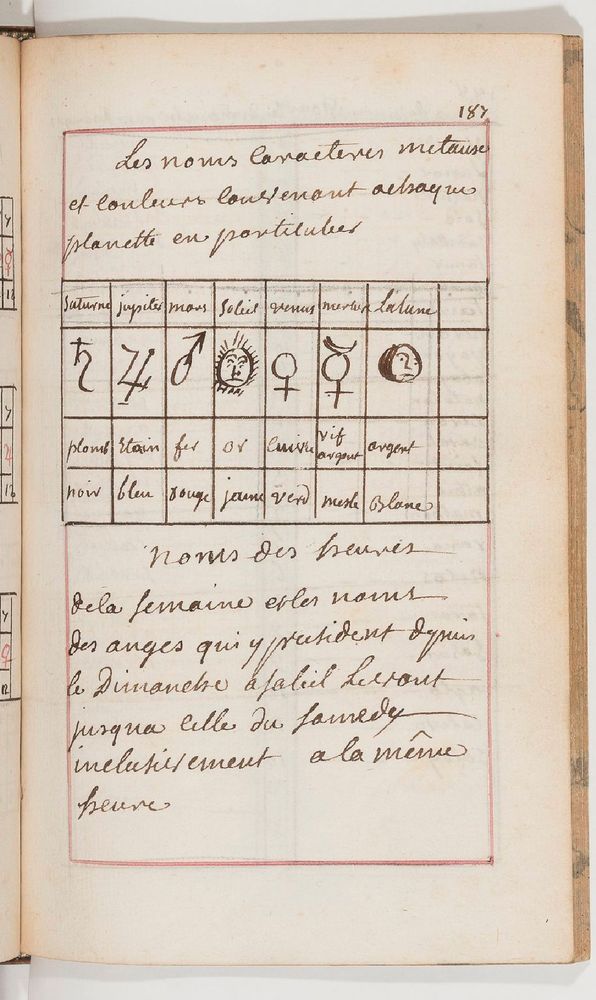 187
Les noms Caracteres metause
et couleurs convenant achaque
planette en particulier
Saturne jupiter mars Soleil venus mercur La lune
♄ ♃ ♂ ♀ ☿
plomb Etain fer or Cuivre vif argent argent
noir bleu rouge jaune verd mesle Blanc
Noms des heures
de la semaine et les noms
des anges qui y president depuis
le Dimanche a soleil Levant
jusqua Celle du samedy
inclusivement a la même
heure
y
♀
12
y
12
y
♀
12